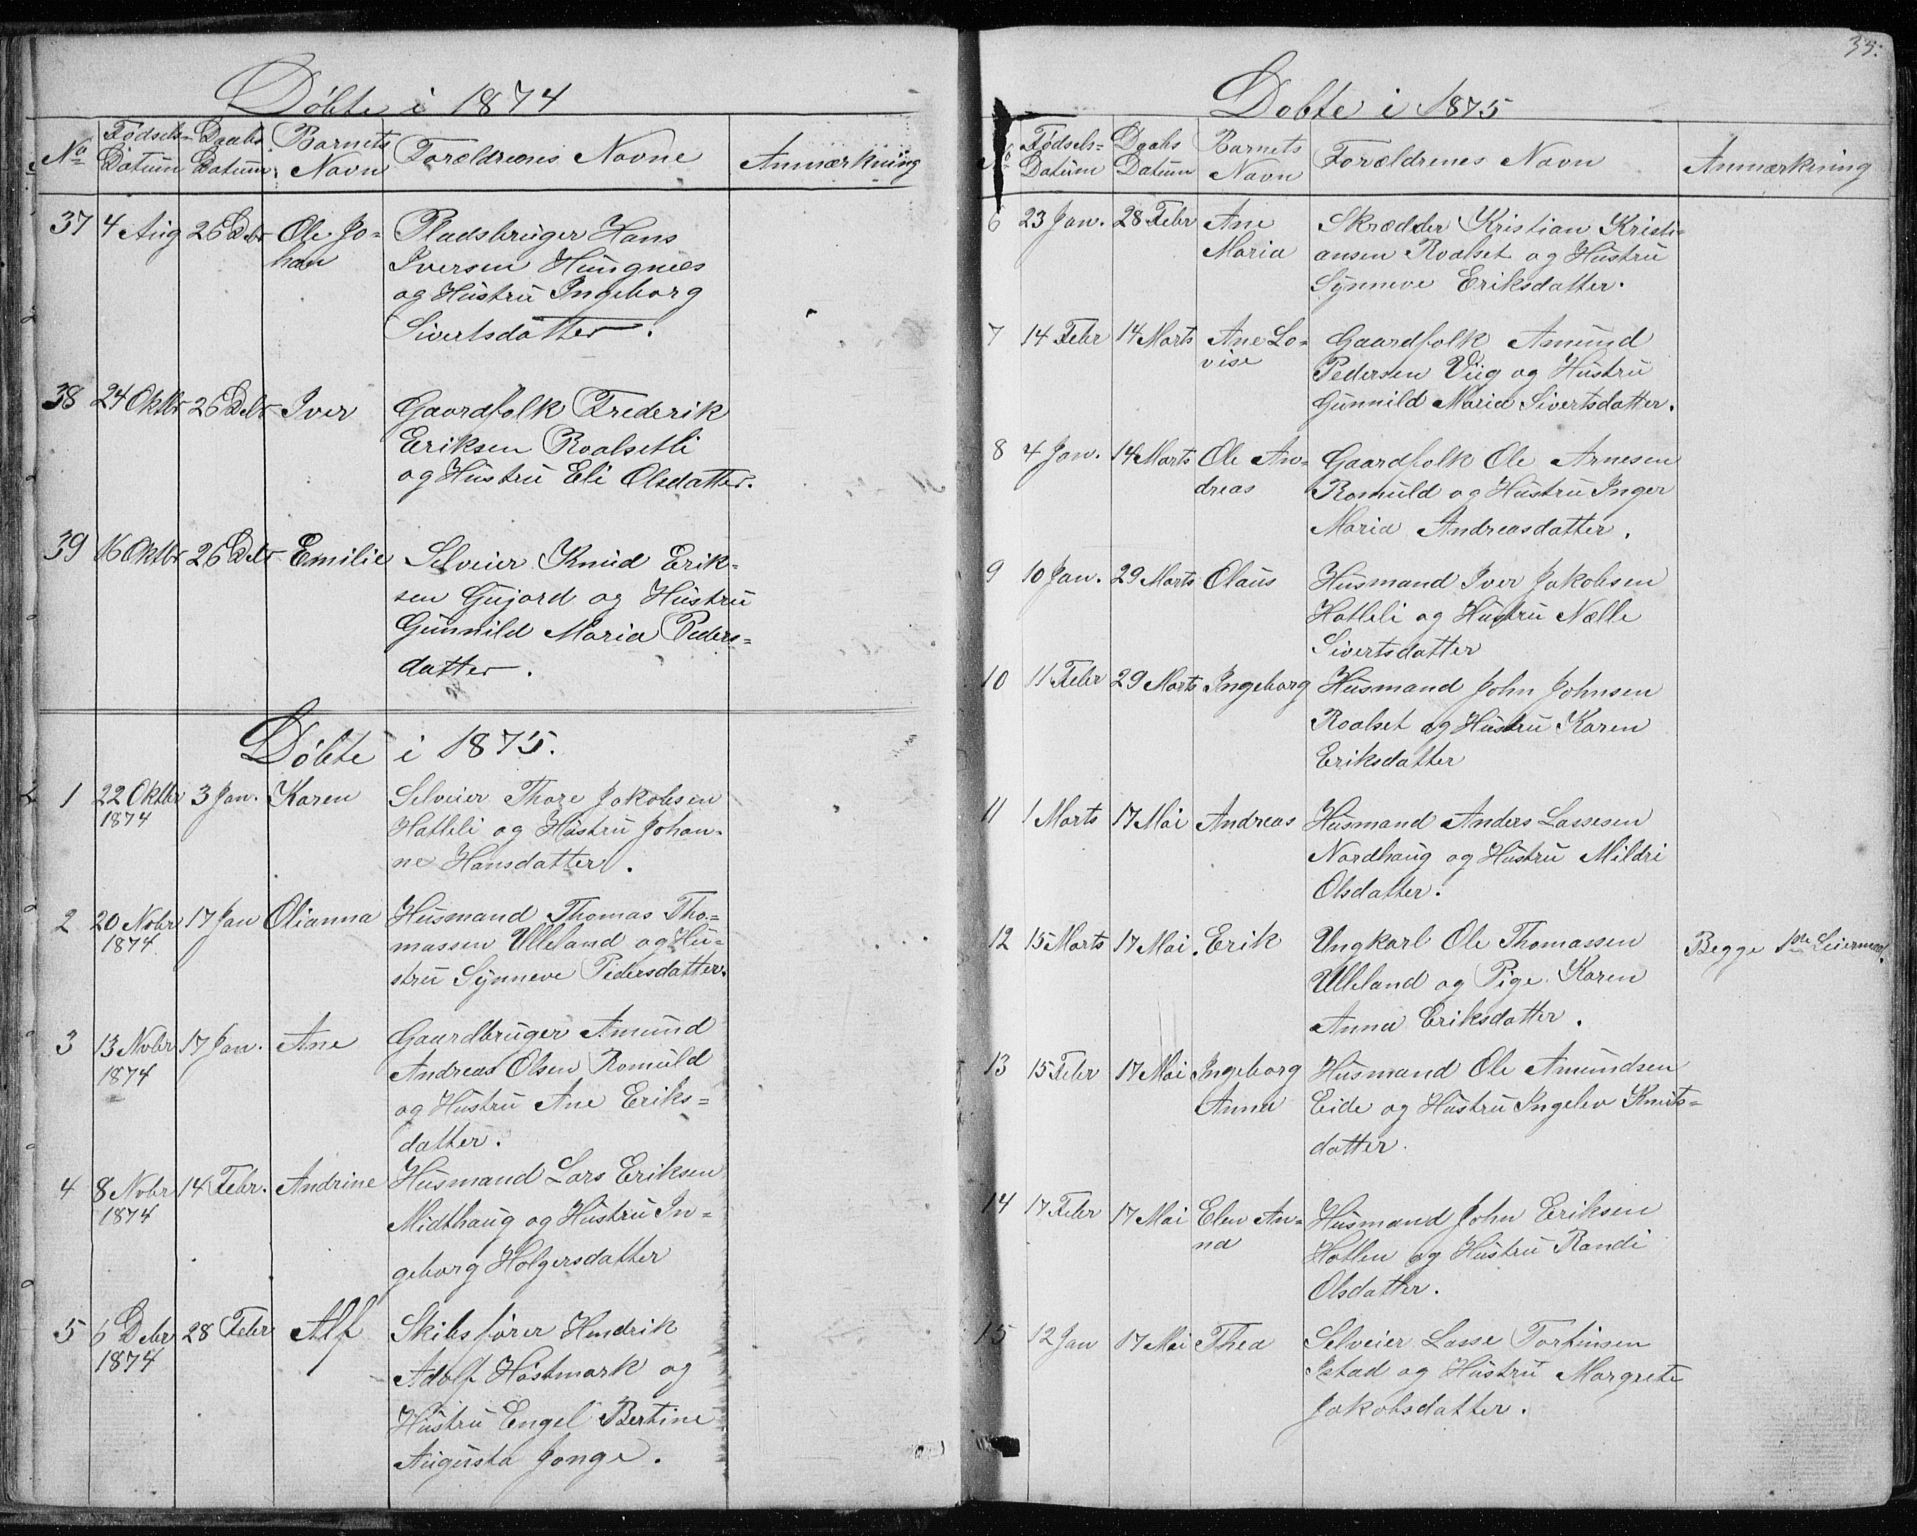 Döbte i 1874
No Födsels- Daabs Barnets Forældrenes Navne Anmærkning
Datum Datum Navn
37 4 Aug 26 Debr Ole Jo- Pladsbruger Hans
han Iversen Hungnes
og Hustru Ingeborg
Sivertsdatter.
38 24 Oktbr 26 Debr Iver Gaardfolk Frederik
Eriksen Roalsetli
og Hustru Eli Olsdatter.
39 16 Oktbr 26 Debr Emilie Selveier Knud Erik-
sen Gujord og Hustru
Gunnild Maria Peders-
datter.
Döbte i 1875.
1 22 Oktbr 3 Jan. Karen Selveier Thore Jakobsen
1874 Hatleli og Hustru Johan-
ne Hansdatter.
2 20 Novbr 17 Jan Olianna Husmand Thomas Tho-
1874 massen Ulleland og Hu-
stru Synneve Pedersdatter.
3 13 Novbr 17 Jan. Ane Gaardbruger Amund
1874 Andreas Olsen Romuld
og Hustru Ane Eriks-
datter.
4 8 Novbr 14 Febr. Andrine Husmand Lars Eriksen
1874 Midthaug og Hustru In-
geborg Holgersdatter
5 6 Debr 28 Febr Alf Skibsförer Hendrik
1874 Adolf Höstmark og
Hustru Engel Bertine
Augusta Jonge.
35.
Dobte i 1875
No Födsels- Daabs Barnets Forældrenes Navn Anmærkning
Datum Datum Navn
6 23 Jan. 28 Febr Ane Skrædder Kristian Kristi-
Maria ansen Roalset og Hustru
Synneve Eriksdatter.
7 14 Febr 14 Marts Ane Lo- Gaardfolk Amund
vise Pedersen Viig og Hustru
Gunnild Maria Sivertsdatter.
8 4 Jan. 14 Marts Ole An- Gaardfolk Ole Arnesen
dreas Romuld og Hustru Inger
Maria Andreasdatter.
9 10 Jan. 29 Marts Olaus Husmand Iver Jakobsen
Hatleli og Hustru Nælle
Sivertsdatter
10 11 Febr 29 Marts Ingeborg Husmand John Johnsen
Roalset og Hustru Karen
Eriksdatter
11 1 Marts 17 Mai Andreas Husmand Anders Lassesen
Nordhaug og Hustru Mildri
Olsdatter.
12 15 Marts 17 Mai. Erik Ungkarl Ole Thomassen Begge 1ste Leiermaal.
Ulleland og Pige Karen
Anna Eriksdatter.
13 15 Febr 17 Mai Ingeborg Husmand Ole Amundsen
Anna Eide og Hustru Ingelev Knuts-
datter.
14 17 Febr 17 Mai Elen An- Husmand John Eriksen
na Hatlen og Hustru Randi
Olsdatter.
15 12 Jan 17 Mai Thea Selveier Lasse Torfinsen
Istad og Hustru Margrete
Jakobsdatter.